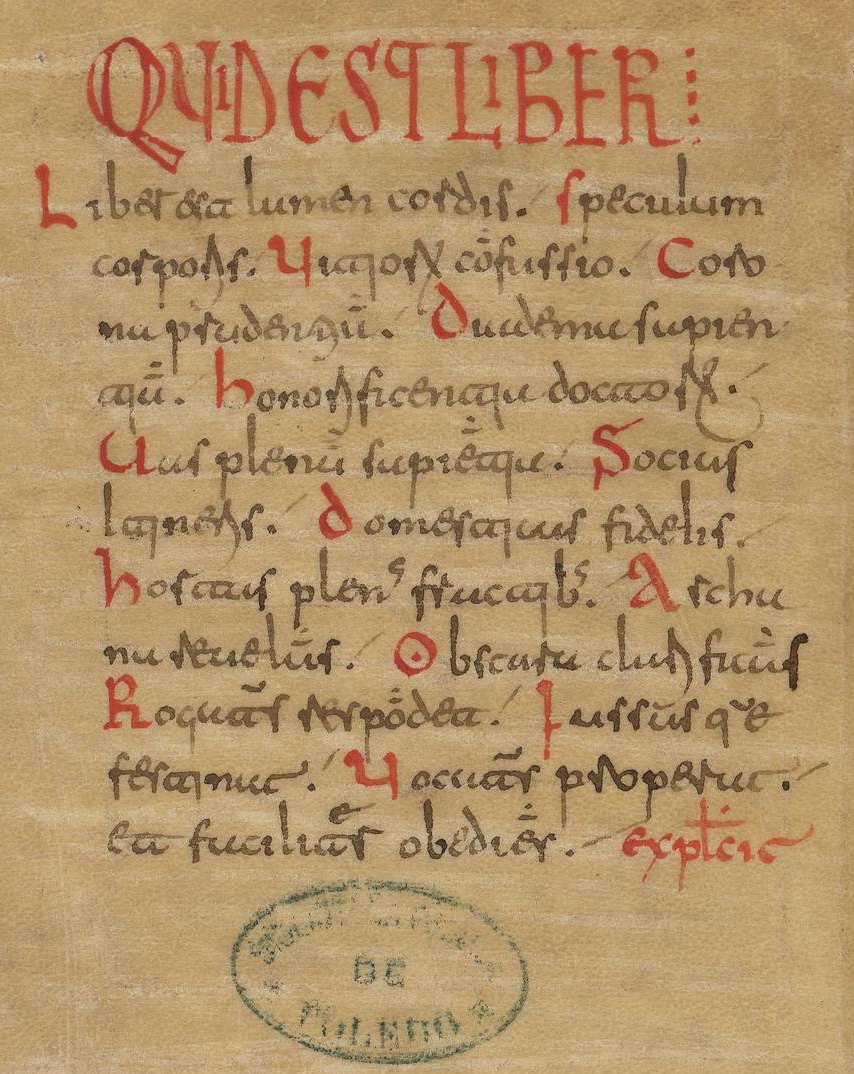 QUID EST LIBER
Liber est lumen cordis. Speculum
corporis. Uitiorꝝ cōfussio. Coro
na prudentiū. Diadema sapien
tiū. honorificentia doctorꝝ.
Uas plenū sapiētia. Socius
Itineris. domesticus fidelis.
hortus plenꝰ fructibꝰ. Archa
na reuelās. Obscura clarificās
Rogatꝰ respōdet. Iussusq̄e
festinat. Uocatꝰ properat.
et faciliter obediēs. explicit
DE
TOLEDO